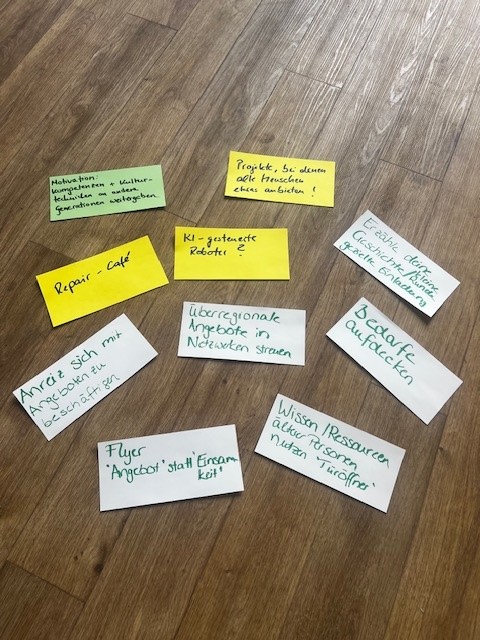 Motivation:
Kompetenzen + Kultur-
techniken an andere
Generationen weitergeben.
Projekte, bei denen
alte Menschen
etwas anbieten!
Repair-Café
KI-gesteuerte
Roboter?
Erzähle deine
Geschichte/kleine
gezielte Einladung
Anreiz sich mit
Angeboten zu
beschäftigen
Überregionale
Angebote in
Netzwerken streuen
Bedarfe
aufdecken
Flyer
"Angebot" statt "Einsam-
keit"
Wissen/Ressourcen
älterer Personen
nutzen "Türöffner"